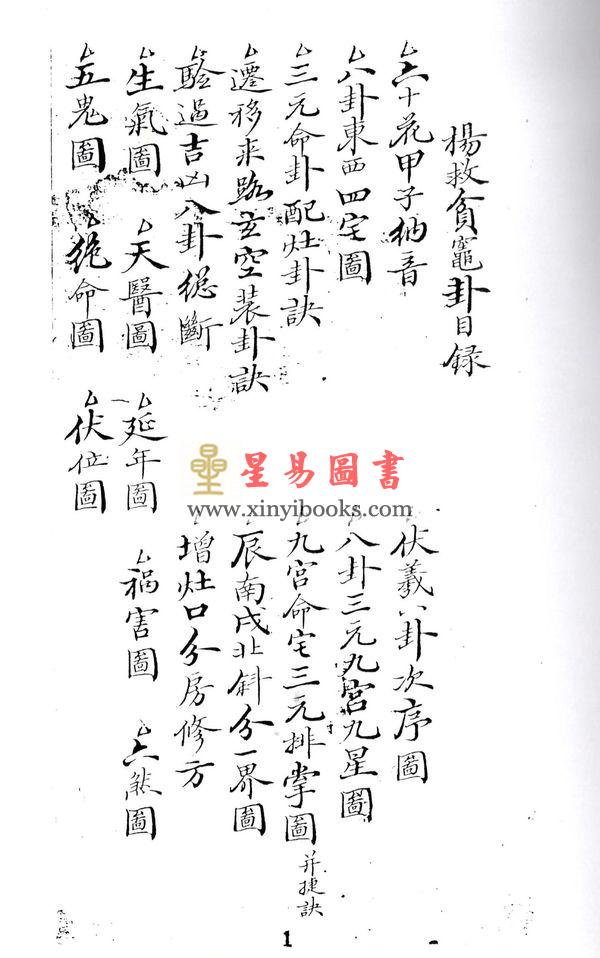 楊救貧竈卦目錄
六十花甲子納音
伏羲八卦次序圖
八卦東西四宅圖
八卦三元九宮九星圖
三元命卦配灶卦訣
九宮命宅三元排掌圖 并捷訣
遷移来路玄空装卦訣
辰南戌北斜分一界圖
驗過吉凶八卦總斷
增灶口分房修方
生氣圖 天醫圖 延年圖 禍害圖 六煞圖
五鬼圖 絕命圖 伏位圖
星易圖書
www.xinyibooks.com
1